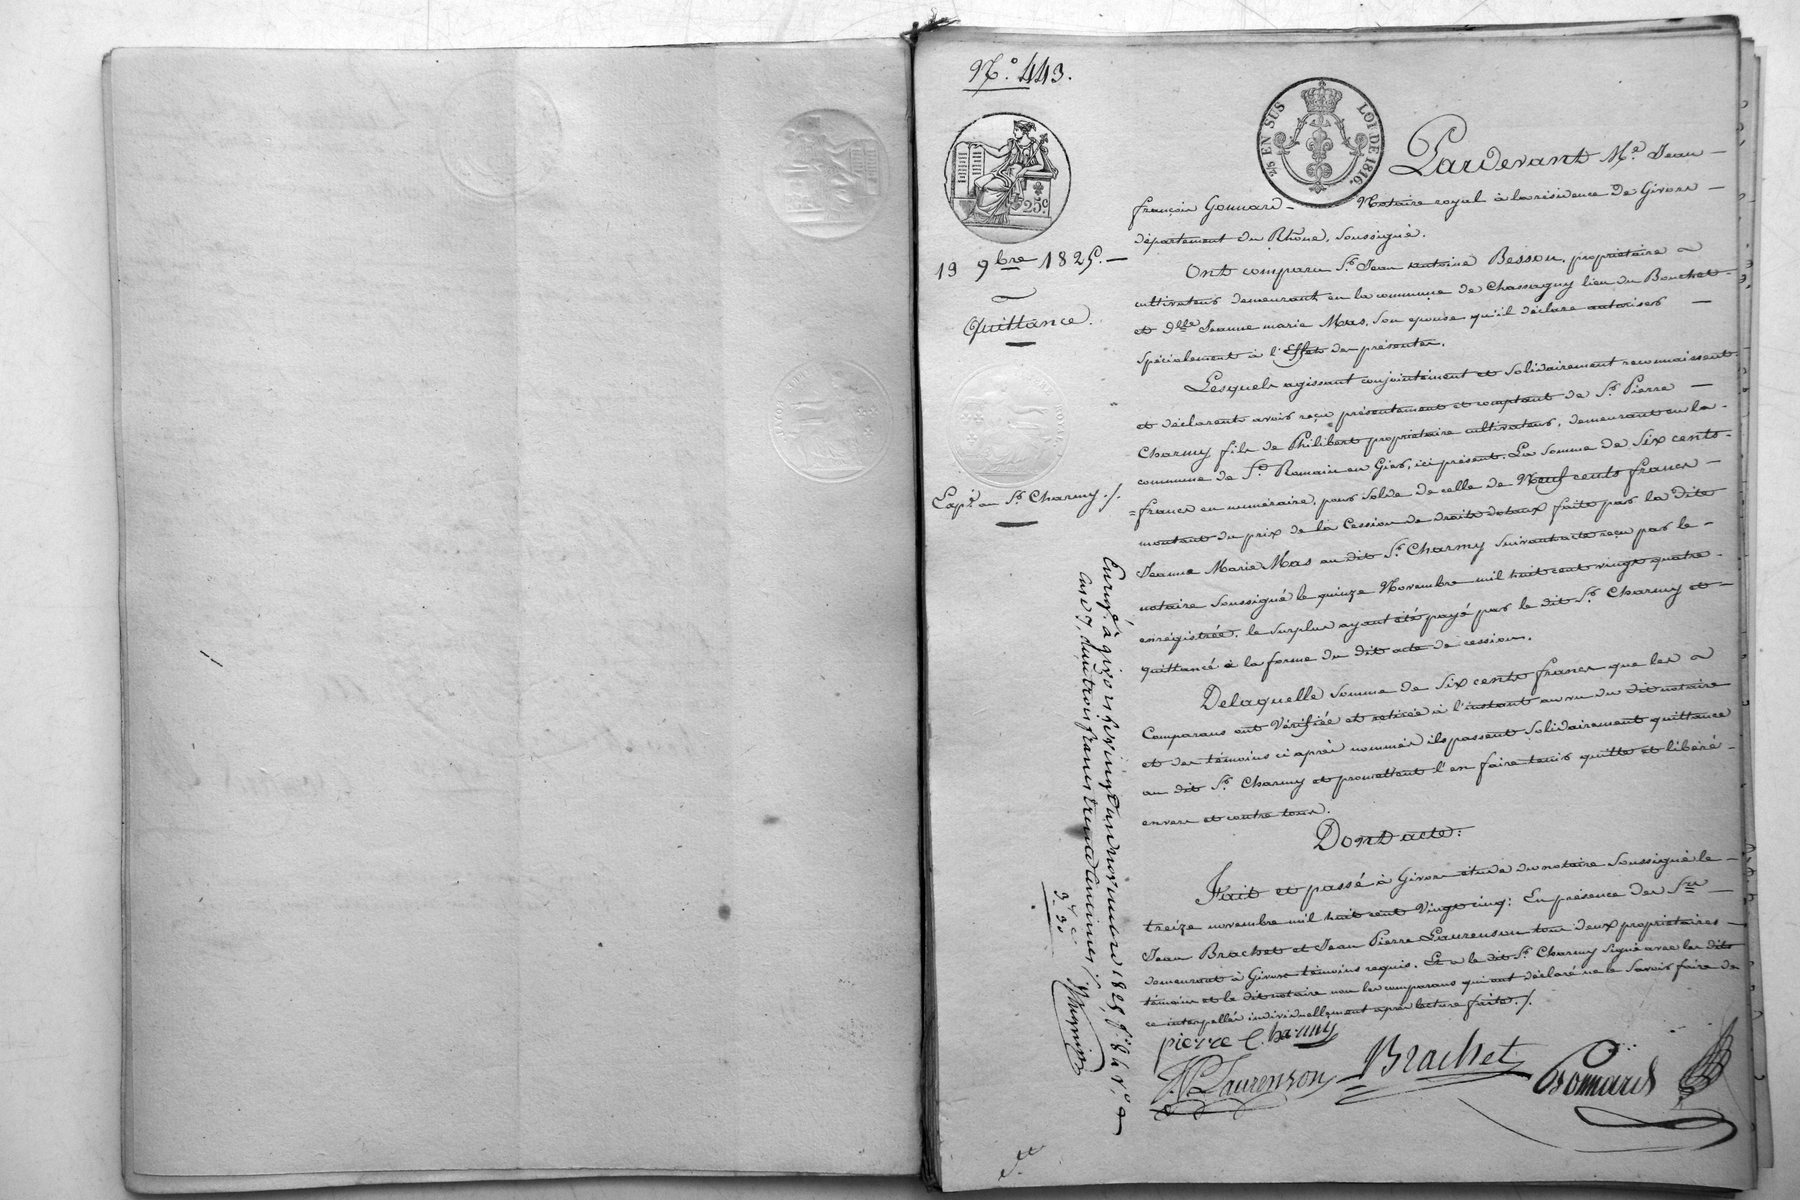 N.° 443.
2/5 EN SUS LOI DE 1816.
25c
13 9bre 1825. —
Quittance.
Exp.on au Sr. Charmy ./.
Pardevant Me. Jean —
françois Gonnard — Notaire royal à la résidence de Givors —
département du Rhône, soussigné.
Ont comparu Sr. Jean Antoine Besson, propriétaire
cultivateur demeurant en la commune de Chassagny lieu du Bouchet —
et Dlle Jeanne marie Mas, son épouse qu'il déclare autoriser —
spécialement à l'Effet des présentes.
Lesquels agissant conjointement et solidairement reconnaissent
et déclarent avoir reçu présentement et comptant de Sr. Pierre —
Charmy fils de Philibert propriétaire cultivateur, demeurant en la —
commune de St. Romain en Gier, ici présent. La somme de six cents —
= francs en numéraire, pour solde de celle de Neuf cents francs —
montant du prix de la Cession de droits dotaux faite par la dite
Jeanne Marie Mas au dit Sr. Charmy suivant acte reçu par le —
notaire soussigné le quinze Novembre mil huit cent vingt quatre —
enrégistrée, le surplus ayant été payé par le dit Sr. Charmy et —
quittancé à la forme du dit acte de cession.
Delaquelle somme de six cents francs que les
Comparans ont Vérifiée et retirée à l'instant au vu du dit notaire
et des témoins ci après nommés ils passent solidairement quittance
au dit Sr. Charmy et promettent l'en faire tenir quitte et libéré —
envers et contre tous.
Dont acte:
Fait et passé à Givors étude du notaire soussigné le —
treize novembre mil huit cent Vingt cinq: En présence des Srs —
Jean Brachet et Jean Pierre Laurenson tous deux propriétaires —
demeurant à Givors témoins requis. Et a le dit Sr. Charmy signé avec les dits
témoins et le dit notaire non les comparans qui ont déclaré ne le savoir faire de
ce interpellés individuellement après lecture faite. /.
pierre Charmy
JP Laurenson Brachet Gonnard
Enregé. à givors le vingt un novembre 1825, fo. 84 vo.
Case 7, dû trois francs trente centimes /.
3f 30c